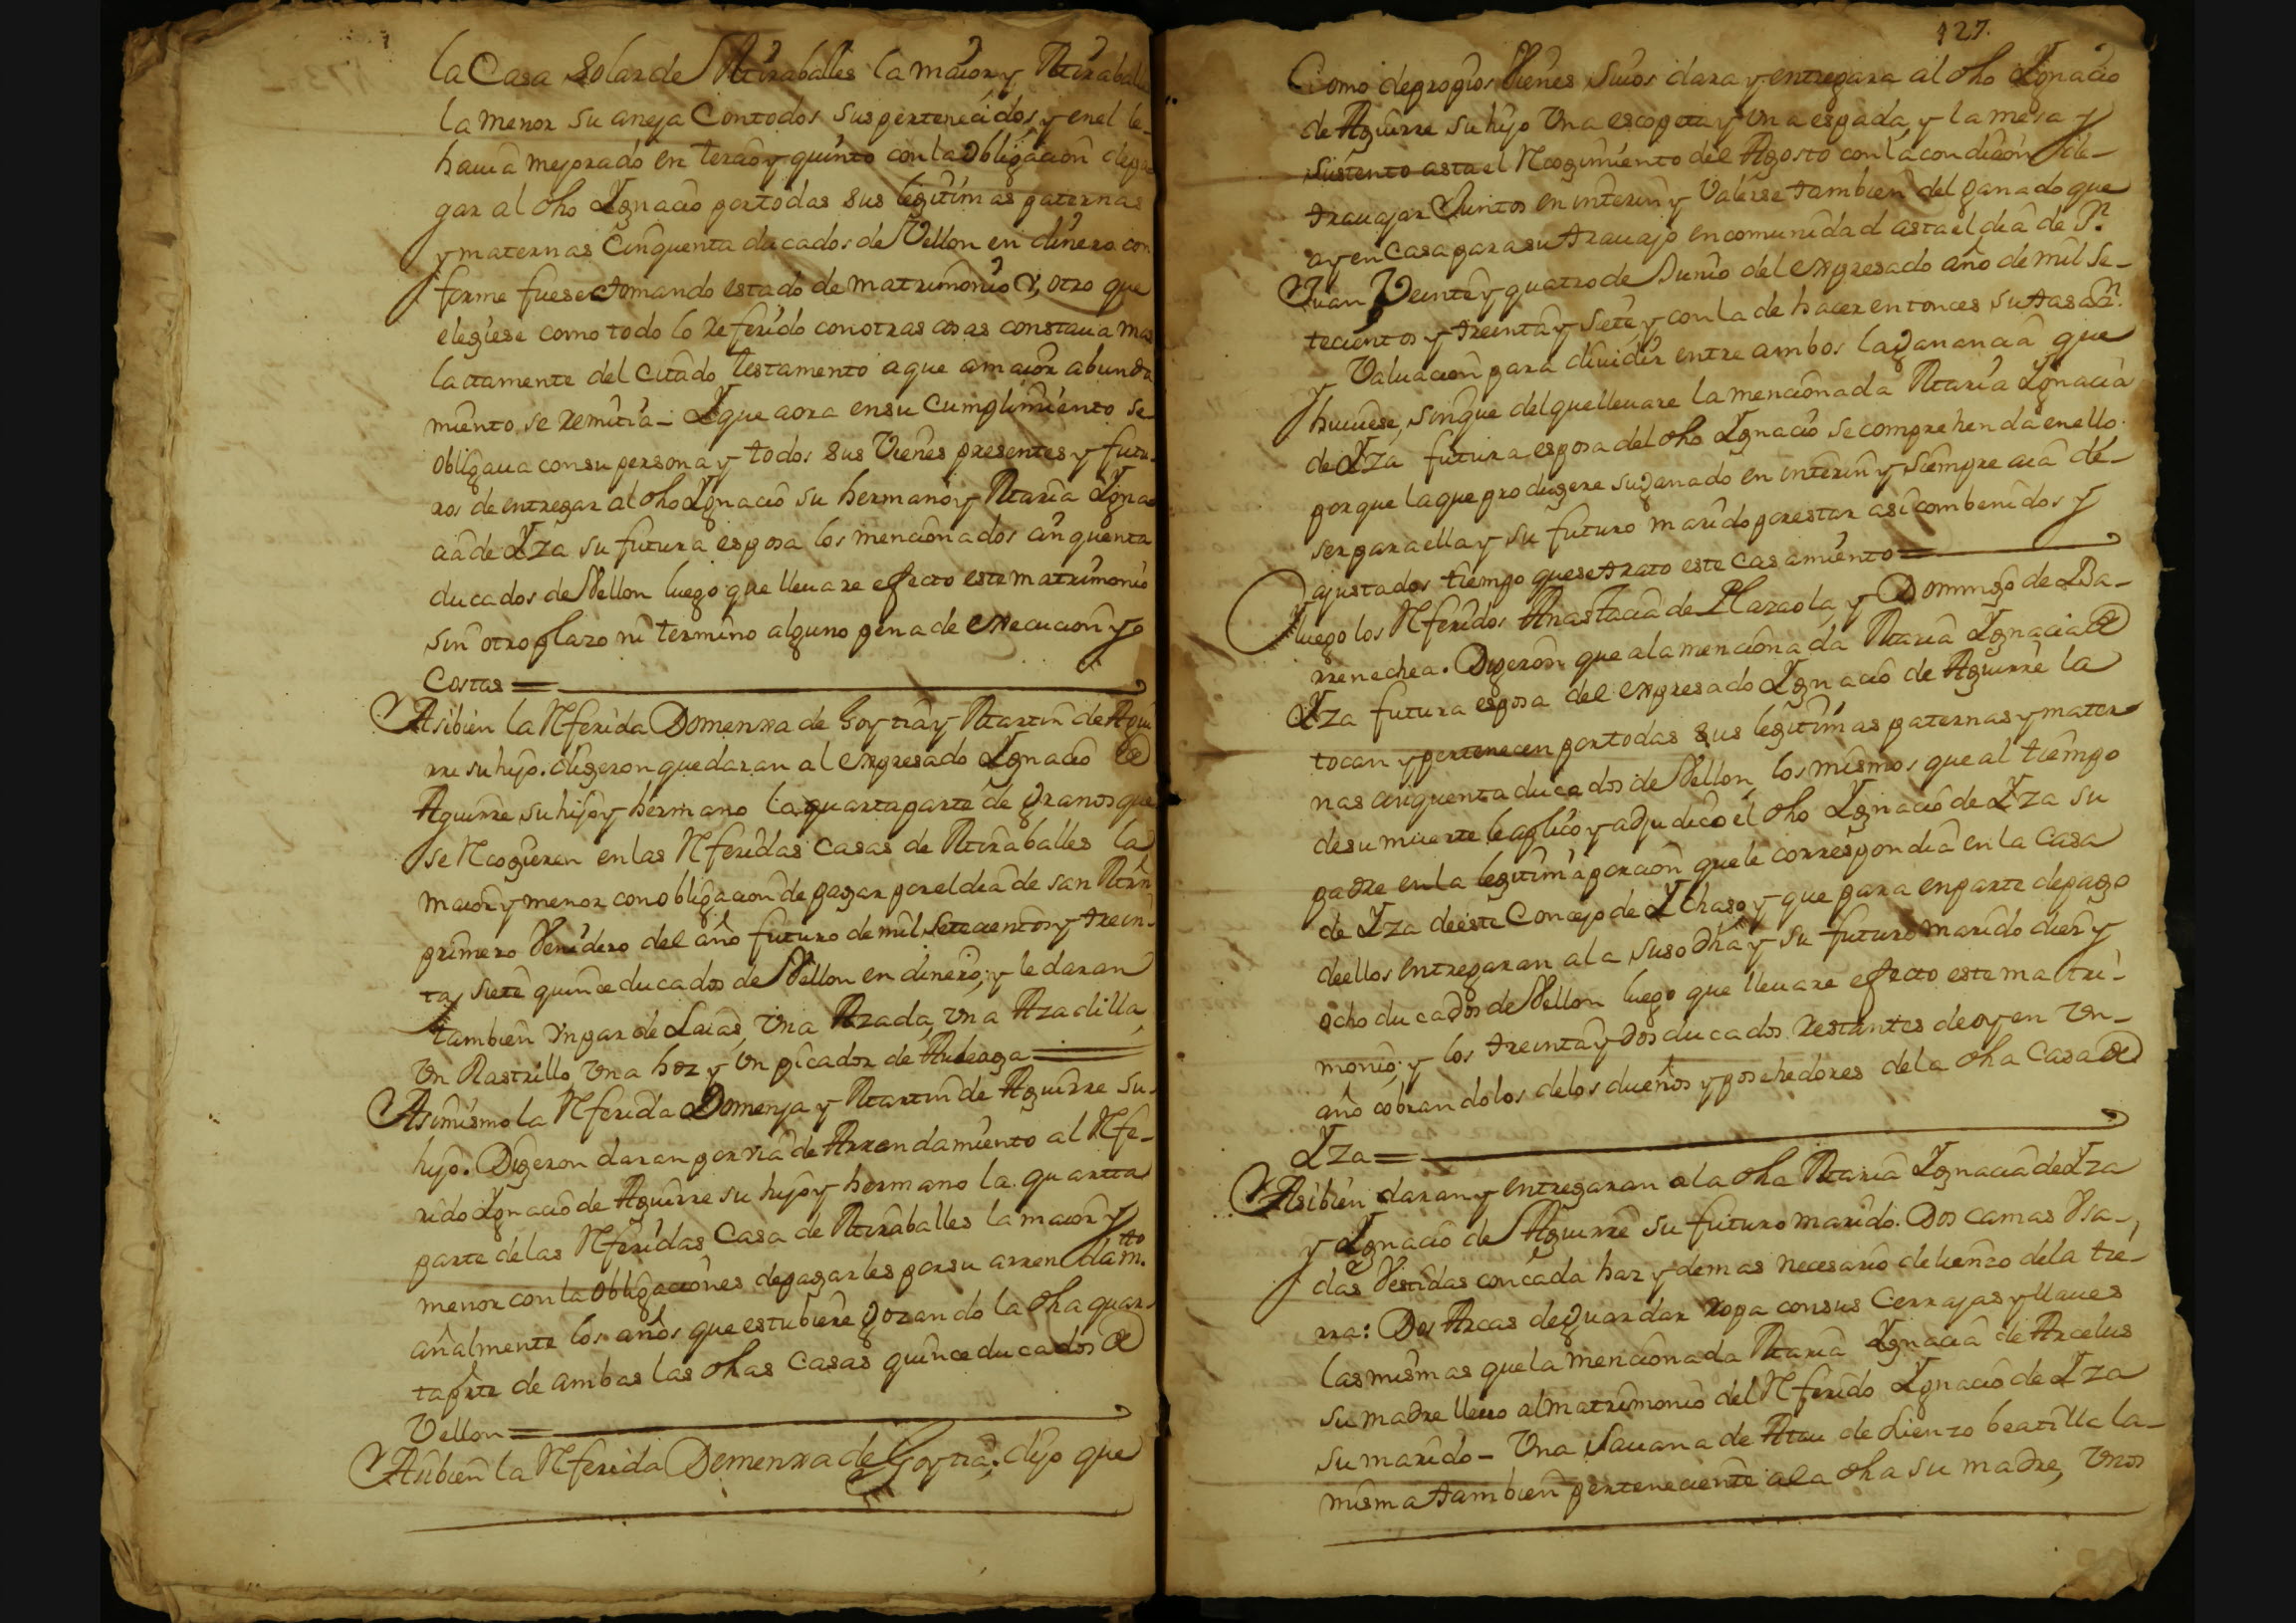 la Casa Solar de Miraballes la maior y Miraballes
la menor su aneja Contodos sus pertenecidos, y en el le
hauia mejorado en tercio y quinto con la obligacion de pa
gar al dho Ygnacio por todas sus legitimas paternas
y maternas Cinquenta ducados de Vellon en dinero con
forme fuese tomando estado de matrimonio V, otro que
eleguiese como todo lo referido con otras cosas constaua mas
latamente del citado testamento a que a maior abunda
miento se remitia - Y que aora en su cumplimiento se
obligaua con su persona y todos sus Vienes presentes y futu
ros de entregar al dho Ygnacio su hermano y Maria Ygna
cia de Yza su futura esposa los mencionados cinquenta
ducados de Vellon luego que lleuare efecto este matrimonio
sin otro plazo ni termino alguno pena de execucion y
Costas =
Asibien la Referida Domenxa de Goytia y Martin de Agui
rre su hijo. digeron que daran al expresado Ygnacio de
Aguirre su hijo y hermano la quarta parte de granos que
se Recogieren en las Referidas Casas de Miraballes la
maior y menor con obligacion de pagar por el dia de san Mrn
primero Venidero del año futuro de mil setecientos y trein
ta y siete quince ducados de Vellon en dinero; y le daran
tambien Un par de Laias, Una Azada, Una Azadilla,
Un Rastrillo Una hoz y Un picador de Auleaga =
Asimismo la Referida Domenja y Martin de Aguirre su
hijo. Digeron daran por via de Arrendamiento al Refe-
rido Ygnacio de Aguirre su hijo y hermano la quartta
parte de las Referidas Casa de Miraballes la maior y
menor con la obligaciones de pagarles por su arrendamto.
añalmente los años que estubiere gozando la dha quar-
ta parte de ambas las dhas Casas quince ducados de
Vellon =
Asibien la Referida Domenxa de Goytia. dijo que
127.
Como de propios Vienes suios dara y entregara al dho Ygnacio
de Aguirre su hijo Una escopeta y Una espada, y la mesa y
sustento asta el Recogimiento del Agosto con la condicion de
trauajar Juntos en interin y Valerse tambien del ganado que
ay en Casa para su trauajo en comunidad asta el dia de Sn.
Juan Veinte y quatro de Junio del expresado año de mil se-
tecientos y treinta y siete, y con la de hacer entonces su tasacon.
y Valuacion para diuidir entre ambos la ganancia que
huuiese, sin que del que lleuare la mencionada Maria Ygnacia
de Yza futura esposa del dho Ygnacio se comprehenda en ello
por que la que produgere su ganado en interin y siempre aia de
ser para ella y su futuro marido por estar asi combenidos y
ajustados tiempo que se trato este casamiento =
Y luego los Referidos Anastacia de Plazaola, y Domingo de Ba-
rrenechea. Digeron que a la mencionada Maria Ygnacia de
Yza futura esposa del expresado Ygnacio de Aguirre la
tocan y pertenecen por todas sus legitimas paternas y mater
nas cinquenta ducados de Vellon, los mismos que al tiempo
de su muerte le aplico y adjudico el dho Ygnacio de Yza su
padre en la legitima porcion que le correspondia en la Casa
de Yza de este Concejo de Ychaso y que para en parte de pago
de ellos entregaran a la suso dha y su futuro marido diez y
ocho ducados de Vellon luego que lleuare efecto este matri-
monio; y los treinta y dos ducados restantes de oy en Un
año cobrandolos de los dueños y posehedores de la dha Casa de
Yza =
Asibien daran y entregaran a la dha Maria Ygnacia de Yza
y Ygnacio de Aguirre su futuro marido. Dos camas Usa-
das Vestidas con cada haz y demas necesario de lienzo de la tie-
rra: Dos Arcas de guardar ropa con sus Cerrajas y llaues
las mismas que la mencionada Maria Ygnacia de Arcelus
su madre lleuo al matrimonio del Referido Ygnacio de Yza
su marido - Una Sauana de Atau de Lienzo beatilla la-
misma tambien perteneciente a la dha su madre, Unos